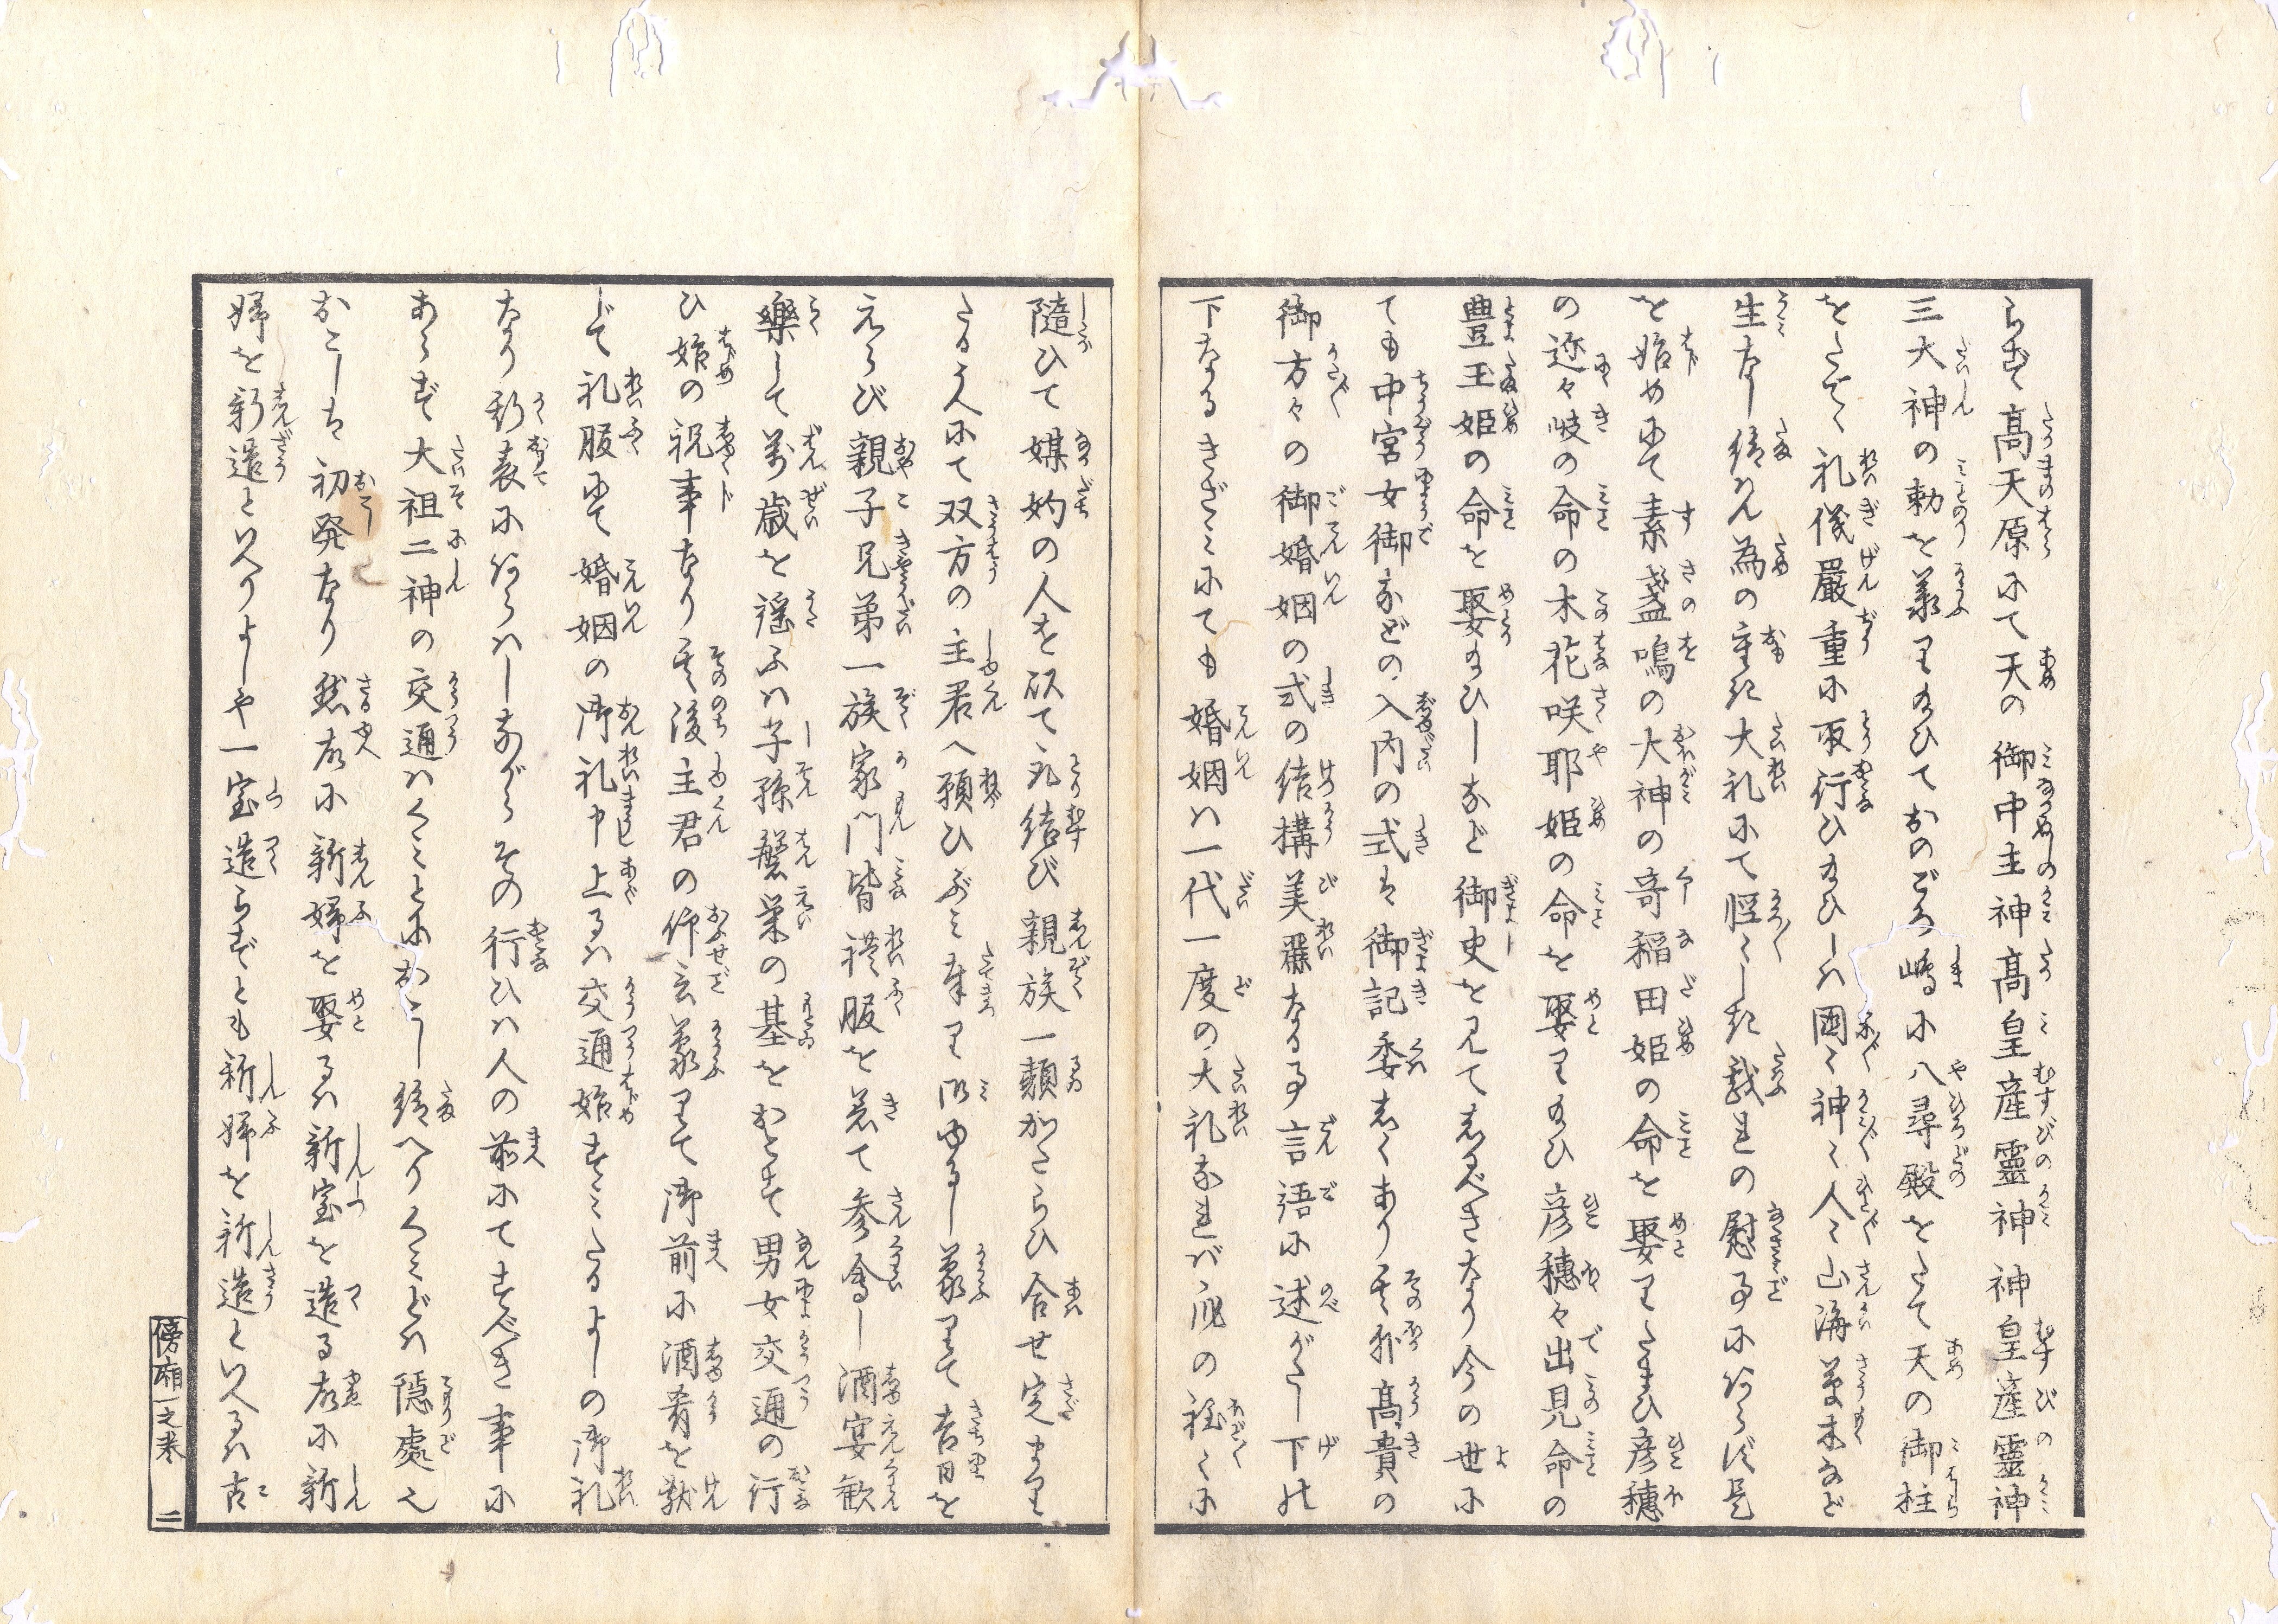 らず高天原にて天の御中主神高皇産霊神神皇産霊神
三大神の勅を蒙りたまひておのごろ嶋に八尋殿をたて天の御柱
をたてゝ礼儀厳重に取行ひたまひしハ国〻神〻人〻山海草木など
生なし給はん為の重き大礼にて軽〻しき戯れの慰事にハあらず是
を始めにて素盞嗚の大神の奇稲田姫の命を娶りたまひ彦穂
の迩々岐の命の木花咲耶姫の命を娶りたまひ彦穂々出見命の
豊玉姫の命を娶たまひしなど御史を見てしるべきなり今の世に
ても中宮女御などの入内の式は御記委しくあり其外高貴の
御方々の御婚姻の式の結構美麗なる事言語に述がたし下の
下なるきざミにても婚姻ハ一代一度の大礼なれバ身の程〻に
随ひて媒妁の人を以て取結び親族一類かたらひ合せ定まり
たる人にて双方の主君へ願ひぶミ奉り御ゆるし蒙りて吉日を
えらび親子兄弟一族家門皆禮服を着て参会し酒宴歓
樂して萬歳を謡ふハ子孫繁栄の基をおこす男女交通の行
ひ始の祝事なり其後主君の仰言蒙りて御前に酒肴を献
じて礼服にて婚姻の御礼申上るハ交通始すミたるよしの御礼
なり形表にあらハしながらその行ひハ人の前にてすべき事に
あらず大祖二神の交通ハくミとにおこし給へりくミどハ隠處也
おこしは初発なり然故に新婦を娶るハ新室を造る故に新
婦を新造といへりよしや一室造らずとも新婦を新造といへるハ古
傍廂一之巻　二